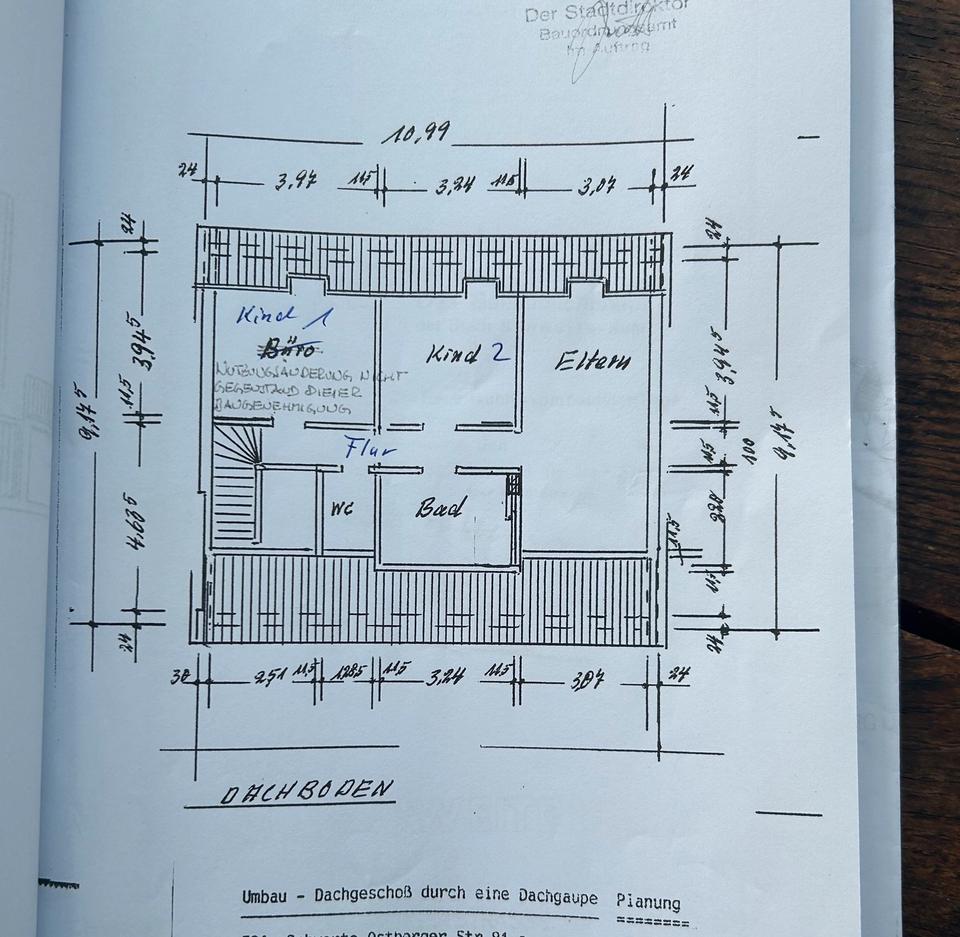 Der Stadtdirektor
Bauordnungsamt
Im Auftrag
10,99
24 3,97 11,5 3,24 11,5 3,07 24
24
24
Kind 1
Büro
NUTZUNGSÄNDERUNG NICHT
GEGENSTAND DIESER
BAUGENEHMIGUNG
Kind 2
Eltern
3,945
3,945
11,5
11,5
9,175
9,175
Flur
100
WC
Bad
4.635
11,5
24
24
30 2,51 11,5 1,285 11,5 3,24 11,5 3,07 24
DACHBODEN
Umbau - Dachgeschoß durch eine Dachgaupe Planung